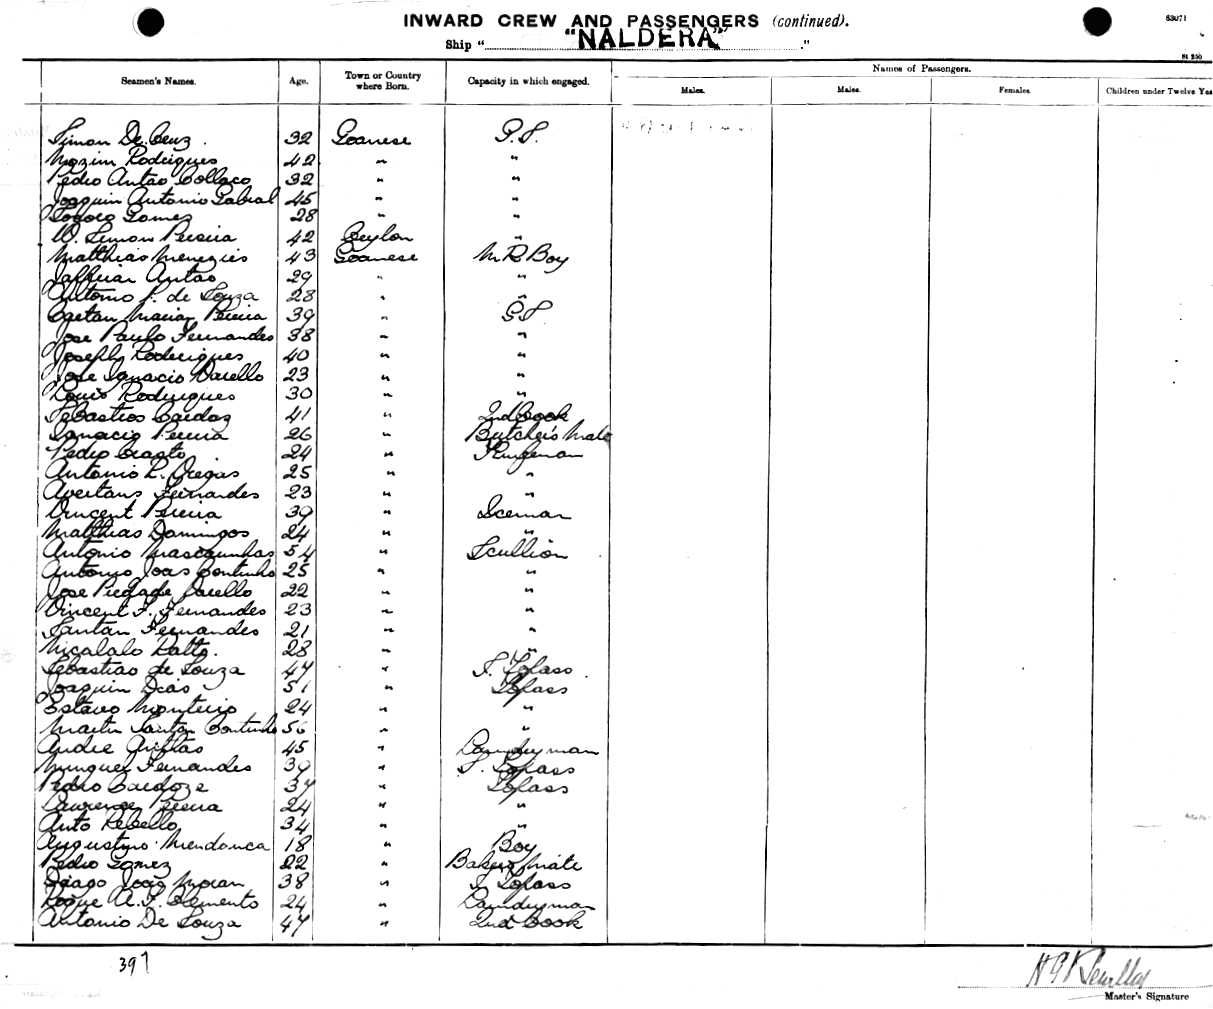 INWARD CREW AND PASSENGERS (continued).
Ship "NALDERA"
53071
Seamen's Names. Age. Town or Country where Born. Capacity in which engaged. Names of Passengers.
Males. Males. Females. Children under Twelve Yea
Simon De Cruz. 32 Goanese G.S.
Rodrigues 42 " "
Pedro Antao Collaco 32 " "
Joaquim Antonio Cabral 45 " "
Gomes 28 " "
W. Simon Pereira 42 Ceylon "
Matthias Menezies 43 Goanese M R Boy
Antao 29 " "
Antonio P. de Souza 28 " "
Caetan Marian Pereira 39 " GS
Jose Paulo Fernandes 38 " "
Joseph Roderigues 40 " "
Jose Ignacio Barello 23 " "
Louis Rodrigues 30 " "
Sebastiao Cardoz 41 " 2nd Cook
Ignacio Pereira 26 " Butcher's Mate
Pedro Crasto 24 "
Antonio L. Viegas 25 " "
Avertano Fernandes 23 " "
Vincent Pereira 39 " Iceman
Matthias Domingos 24 " "
Antonio Mascarinhas 54 " Scullion
Antonio Joas Continho 25 " "
Jose Piedade Barello 22 " "
Vincent F. Fernandes 23 " "
Santan Fernandes 21 " "
Dalto. 28 " "
Sebastiao de Souza 47 " S. Topass
Joaquim Dias 51 " Topass
Estavo Monteiro 24 " "
Martin Santan Continho 56 " "
Andre 45 " Laundryman
Minguel Fernandes 39 " S. Topass
Pedro Cardoze 37 " Topass
Laurence Pereira 24 " "
Anto Rebello 34 " "
Augustino Mendonca 18 " Boy
Pedro Gomez 22 " Bakers Mate
Diago Joao Moran 38 " S. Topass
Roque A. F. Clemento 24 " Laundryman
Antonio De Souza 47 " 2nd Cook
397
Master's Signature